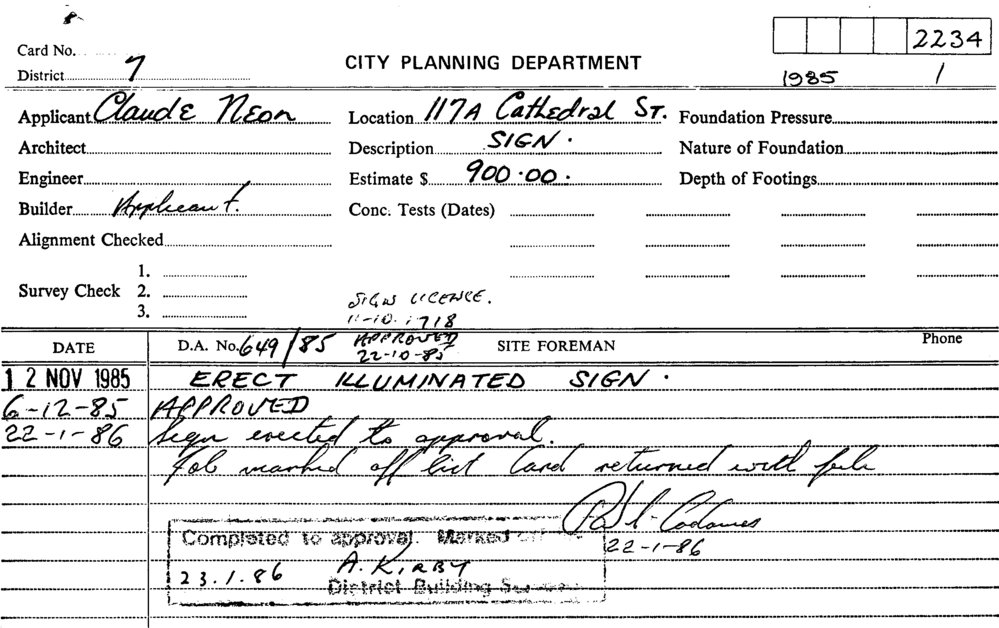 2234
Card No.
CITY PLANNING DEPARTMENT
District 7
1985 /
Applicant Claude Neon Location 117A Cathedral St. Foundation Pressure
Architect Description SIGN. Nature of Foundation
Engineer Estimate $ 900.00. Depth of Footings
Builder Applicant. Conc. Tests (Dates)
Alignment Checked
1.
Survey Check 2.
3.
SIGN LICENCE.
11-10. 1718
DATE D.A. No. 649/85 APPROVED SITE FOREMAN Phone
22-10-85
12 NOV 1985 ERECT ILLUMINATED SIGN.
6-12-85 APPROVED
22-1-86 Sign erected to approval.
Job marked off list Card returned with file
22-1-86
Completed to approval. Marked off
23.1.86 A. KIRBY
District Building